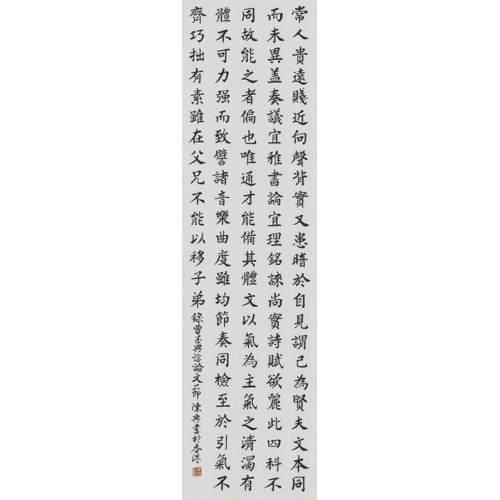 常人貴遠賤近向聲背實又患暗於自見謂己為賢夫文本同
而末異盖奏議宜雅書論宜理銘誄尚實詩賦欲麗此四科不
同故能之者偏也唯通才能備其體文以氣為主氣之清濁有
體不可力强而致譬諸音樂曲度雖均節奏同檢至於引氣不
齊巧拙有素雖在父兄不能以移子弟 錄曹丕典論論文一節 書於香港